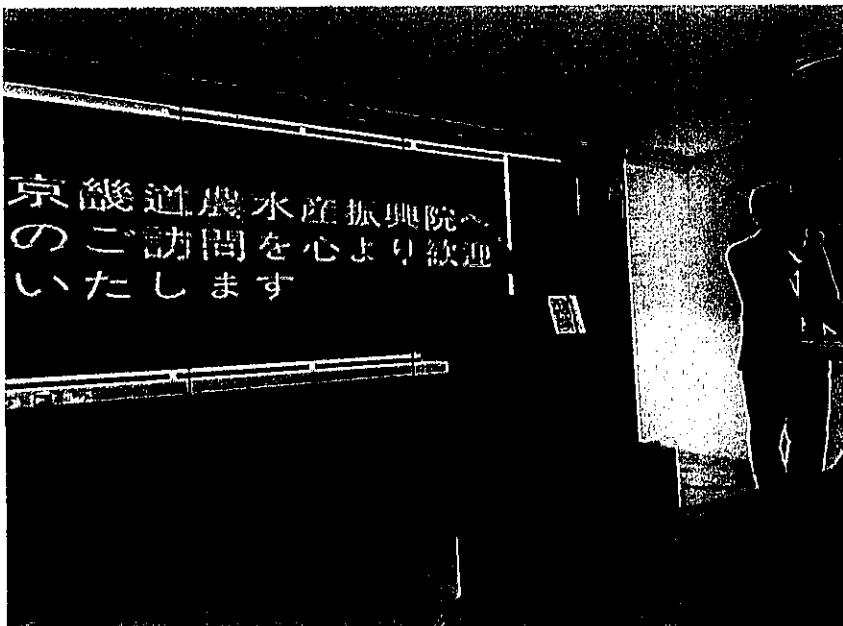 京畿道農水産振興院へ
のご訪問を心より歓迎
いたします